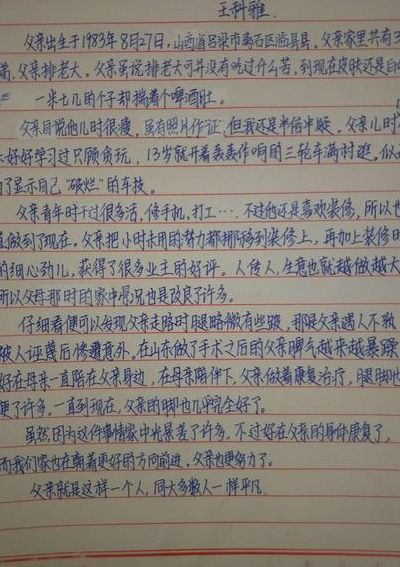 王科雅.
父亲出生于1983年8月27日,山西省吕梁市离石区临县县.父亲家里共有3
弟,父亲排老大。父亲虽说排老大可并没有吃过什么苦,到现在皮肤还是白
一米七几的个子却揣着个啤酒肚.
父亲自说他儿时很瘦,虽有照片作证,但我还是半信半疑.父亲儿时
好好学习过只顾贪玩,13岁就开着轰轰作响的三轮车满村逛.似
了显示自己"破烂"的车技。
父亲青年时干过很多活,修手机,打工…,不过他还是喜欢装修,所以也
直做到了现在。父亲把小时未用的努力都挪移到装修上,再加上装修时
的细心劲儿,获得了很多业主的好评。人传人,生意也就越做越大
所以父母那时的家中景况也是改良了许多。
仔细看便可以发现父亲走路时腿略微有些跛,那是父亲遇人不熟
被人诬蔑后惨遭意外。在山东做了手术之后的父亲脾气越来越暴躁
好在母亲一直陪在父亲身边,在母亲陪伴下,父亲做着康复治疗,腿脚也
便了许多.一直到现在,父亲的脚也几乎完全好了。
虽然因为这件事情家中光景差了许多.不过好在父亲的身体康复了,
而我们家也在朝着更好的方向前进.父亲也更努力了。
父亲就是这样一个人,同大多数人一样平凡.